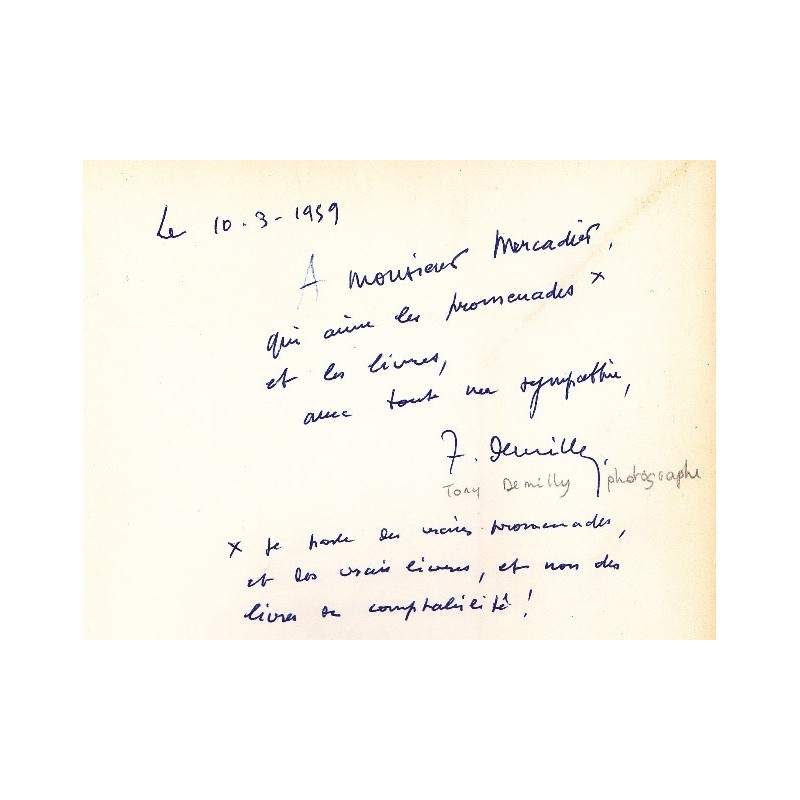 Le 10.3-1959
A Monsieur Mercadier,
qui aime les promenades x
et les livres,
avec toute ma sympathie,
T. Demilly
Tony Demilly photographe
x Je parle des vraies promenades,
et des vrais livres, et non des
livres de comptabilité !